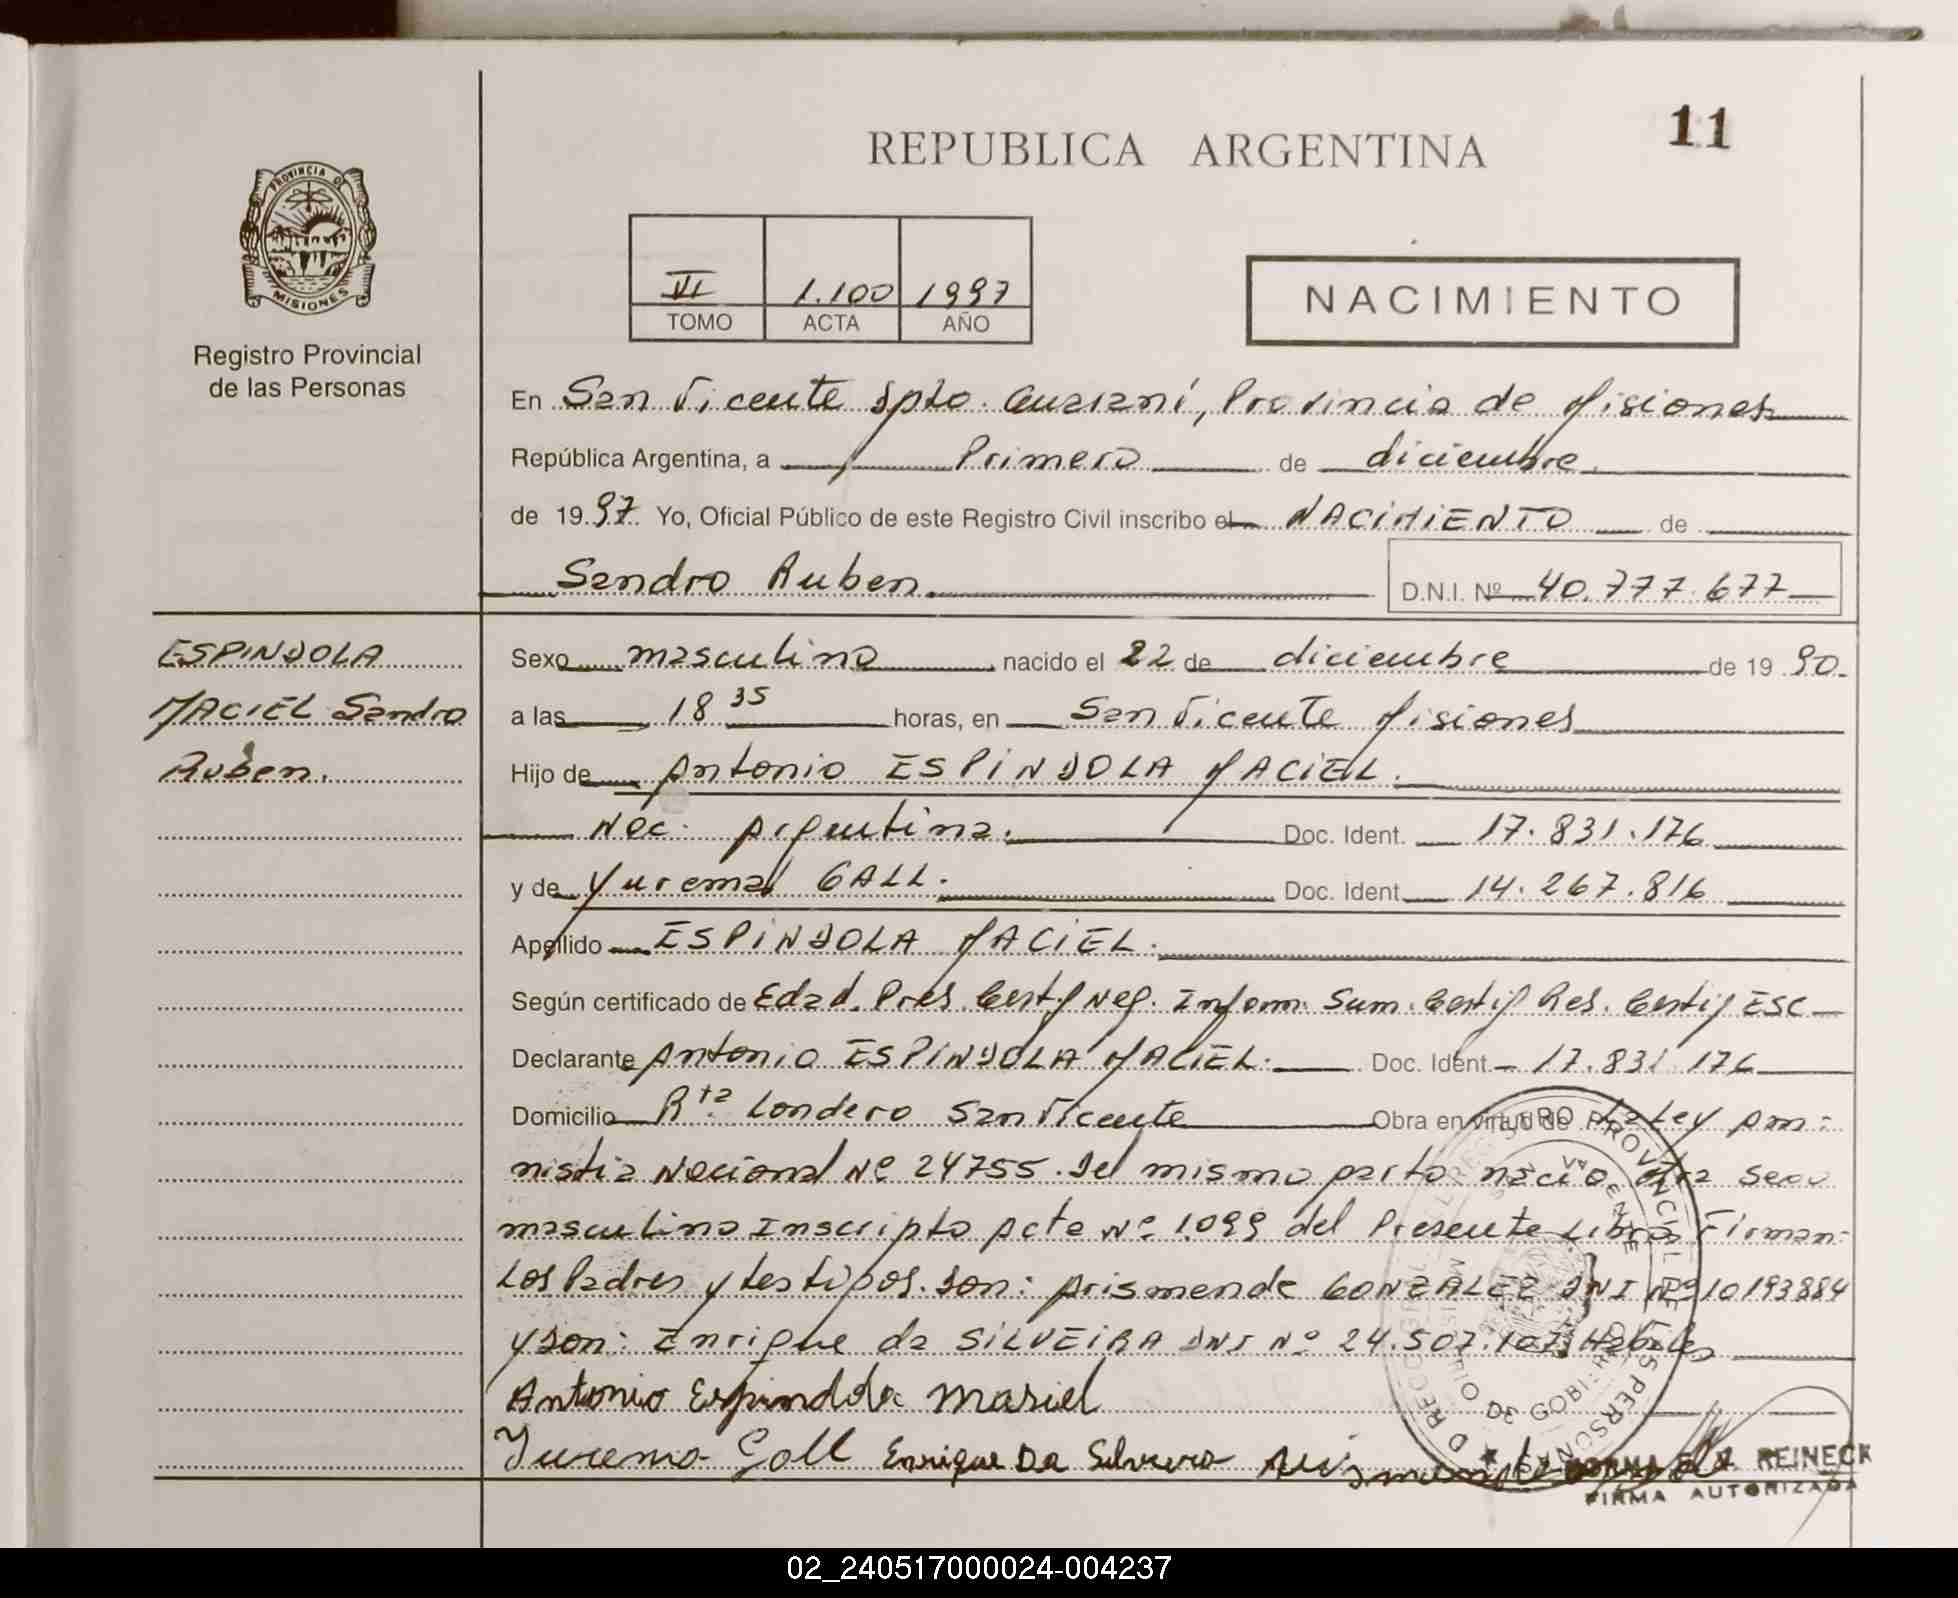 11
REPUBLICA ARGENTINA
PROVINCIA DE
MISIONES
Registro Provincial
de las Personas
VI 1.100 1997
TOMO ACTA AÑO
NACIMIENTO
En San Vicente Dpto. Guaraní, Provincia de Misiones
República Argentina, a Primero de diciembre
de 1997. Yo, Oficial Público de este Registro Civil inscribo el NACIMIENTO de
Sandro Ruben D.N.I. Nº 40.777.677
ESPINDOLA
MACIEL Sandro
Ruben.
Sexo masculino nacido el 22 de diciembre de 1990.
a las 18 35 horas, en San Vicente Misiones
Hijo de Antonio ESPINDOLA MACIEL.
Nac. Argentina. Doc. Ident. 17.831.176
y de Yurema GALL. Doc. Ident. 14.267.816
Apellido ESPINDOLA MACIEL.
Según certificado de Edad. Pres. Certif Neg. Inform. Sum. Certif Res. Certif ESC
Declarante Antonio ESPINDOLA MACIEL. Doc. Ident. 17.831.176
Domicilio Rta Londero San Vicente Obra en virtud de La Ley Am-
nistia Nacional Nº 24755. Del mismo parto nacio otro sexo
masculino Inscripto Acta Nº 1.099 del Presente Libro Firman
Los Padres y testigos. Don: Arismende GONZALEZ DNI Nº 10193884
y Don: Enrique da SILVEIRA DNI Nº 24.507.107 Habiles
Antonio Espindola Masiel
Yurema Gall Enrique Da Silveira
REINECK
FIRMA AUTORIZADA
02_240517000024-004237